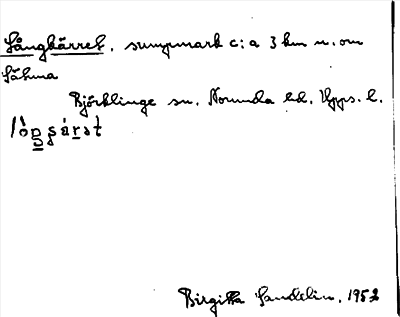 Långkärret, sumpmark c:a 3 km n. om
Björklinge sn. Norunda hd. Upps. l.
Birgitta Sandelin, 1952